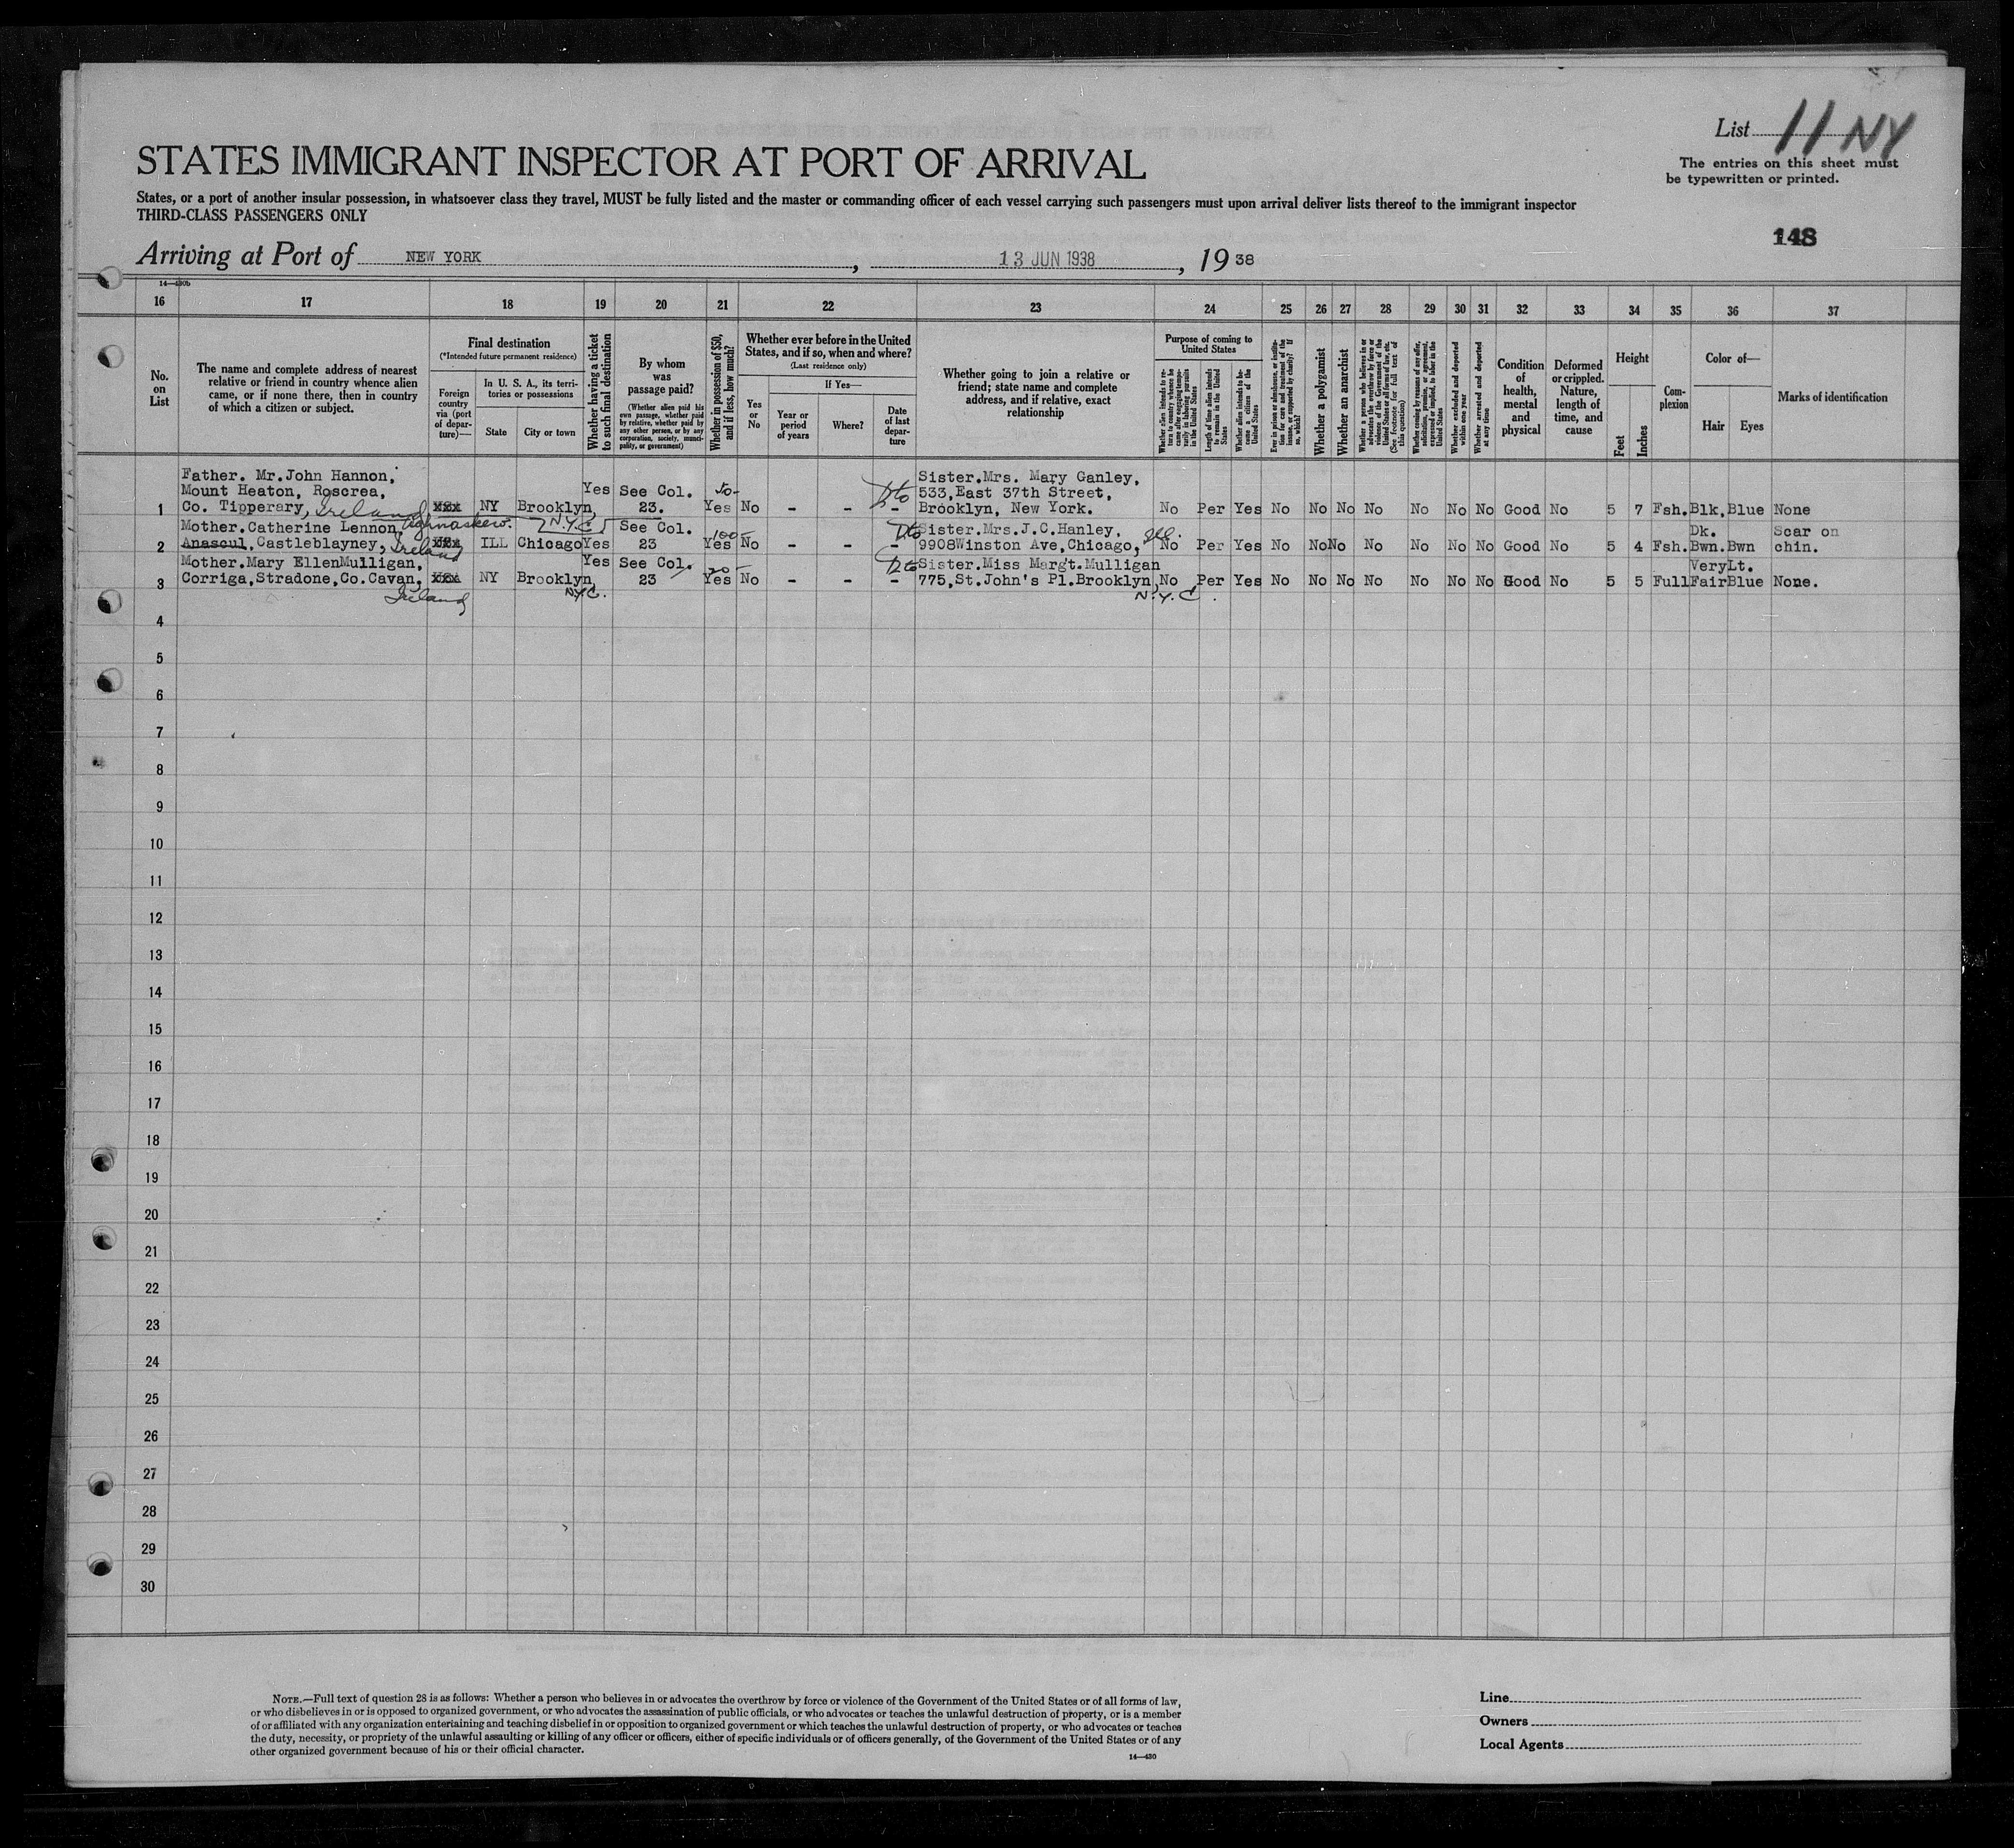 List 11 NY
The entries on this sheet must
be typewritten or printed.
STATES IMMIGRANT INSPECTOR AT PORT OF ARRIVAL
States, or a port of another insular possession, in whatsoever class they travel, MUST be fully listed and the master or commanding officer of each vessel carrying such passengers must upon arrival deliver lists thereof to the immigrant inspector
THIRD-CLASS PASSENGERS ONLY
148
Arriving at Port of NEW YORK, 13 JUN 1938, 1938
14—430b
16 17 18 19 20 21 22 23 24 25 26 27 28 29 30 31 32 33 34 35 36 37
No. on List
The name and complete address of nearest
relative or friend in country whence alien
came, or if none there, then in country
of which a citizen or subject.
Final destination
(*Intended future permanent residence)
Foreign country via (port of departure)—
In U. S. A., its territories or possessions
State
City or town
Whether having a ticket to such final destination
By whom was passage paid?
(Whether alien paid his own passage, whether paid by relative, whether paid by any other person, or by any corporation, society, municipality, or government)
Whether in possession of $50, and if less, how much?
Whether ever before in the United
States, and if so, when and where?
(Last residence only)
Yes or No
If Yes—
Year or period of years
Where?
Date of last departure
Whether going to join a relative or
friend; state name and complete
address, and if relative, exact
relationship
Purpose of coming to United States
Whether alien intends to return to country whence he came after engaging temporarily in laboring pursuits in the United States
Length of time alien intends to remain in the United States
Whether alien intends to become a citizen of the United States
Ever in prison or almshouse, or institution for care and treatment of the insane, or supported by charity? If so, which?
Whether a polygamist
Whether an anarchist
Whether a person who believes in or advocates the overthrow by force or violence of the Government of the United States or all forms of law, etc. (See footnote for full text of this question)
Whether coming by reason of any offer, solicitation, promise, or agreement, expressed or implied, to labor in the United States
Whether excluded and deported within one year
Whether arrested and deported at any time
Condition of health, mental and physical
Deformed or crippled. Nature, length of time, and cause
Height
Feet
Inches
Complexion
Color of—
Hair
Eyes
Marks of identification
Father. Mr.John Hannon,
Mount Heaton, Roscrea,
1 Co. Tipperary, Ireland NY Brooklyn, N.Y.C. Yes See Col. 23. 50- Yes No - - - Sister.Mrs. Mary Ganley,
533,East 37th Street,
Brooklyn, New York. No Per Yes No No No No No No No Good No 5 7 Fsh. Blk. Blue None
Mother.Catherine Lennon,
2 Anascul, Castleblayney, Ireland ILL Chicago Yes See Col. 23 100- Yes No - - - Sister.Mrs.J.C.Hanley,
9908Winston Ave,Chicago, Ill. No Per Yes No No No No No No No Good No 5 4 Fsh. Dk. Bwn. Bwn Scar on chin.
Mother.Mary EllenMulligan,
3 Corriga,Stradone,Co.Cavan, Ireland NY Brooklyn, N.Y.C. Yes See Col. 23 20- Yes No - - - Sister.Miss Margt.Mulligan
775,St.John's Pl.Brooklyn, N.Y.C. No Per Yes No No No No No No No Good No 5 5 Full Very Fair Lt. Blue None.
4
5
6
7
8
9
10
11
12
13
14
15
16
17
18
19
20
21
22
23
24
25
26
27
28
29
30
NOTE.—Full text of question 28 is as follows: Whether a person who believes in or advocates the overthrow by force or violence of the Government of the United States or of all forms of law,
or who disbelieves in or is opposed to organized government, or who advocates the assassination of public officials, or who advocates or teaches the unlawful destruction of property, or is a member
of or affiliated with any organization entertaining and teaching disbelief in or opposition to organized government or which teaches the unlawful destruction of property, or who advocates or teaches
the duty, necessity, or propriety of the unlawful assaulting or killing of any officer or officers, either of specific individuals or of officers generally, of the Government of the United States or of any
other organized government because of his or their official character.
14—430
Line
Owners
Local Agents